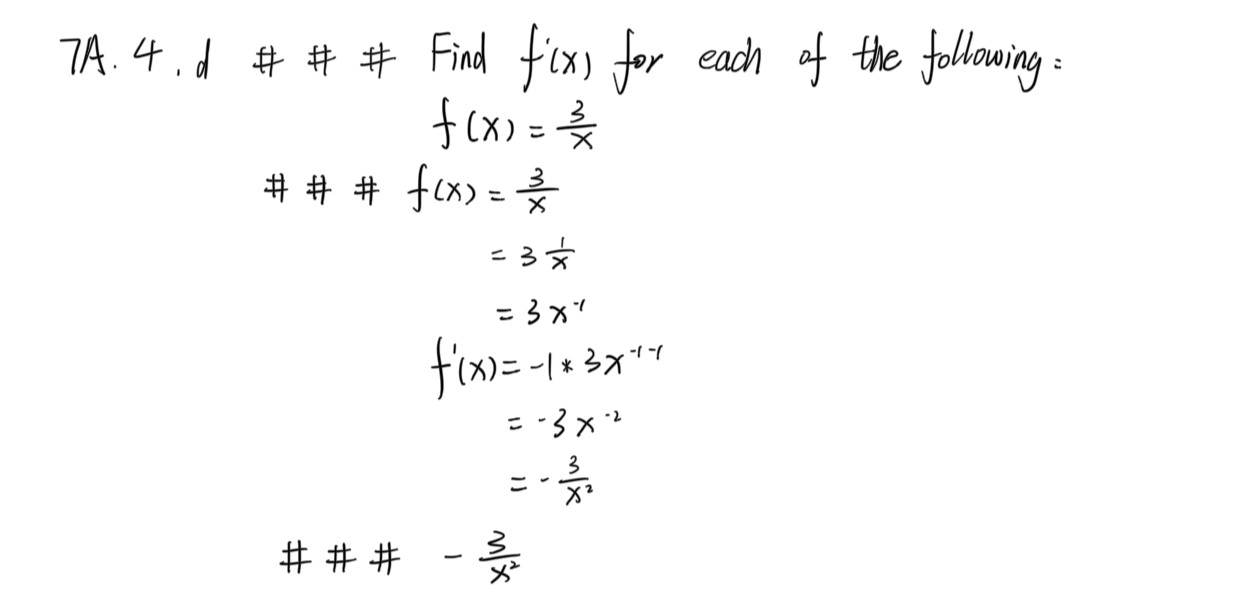 7A. 4. d # # # Find f'(x) for each of the following:
f(x) = 3/x
# # # f(x) = 3/x
= 3 1/x
= 3x⁻¹
f'(x) = -1 * 3x⁻¹⁻¹
= -3x⁻²
= - 3/x²
# # # - 3/x²